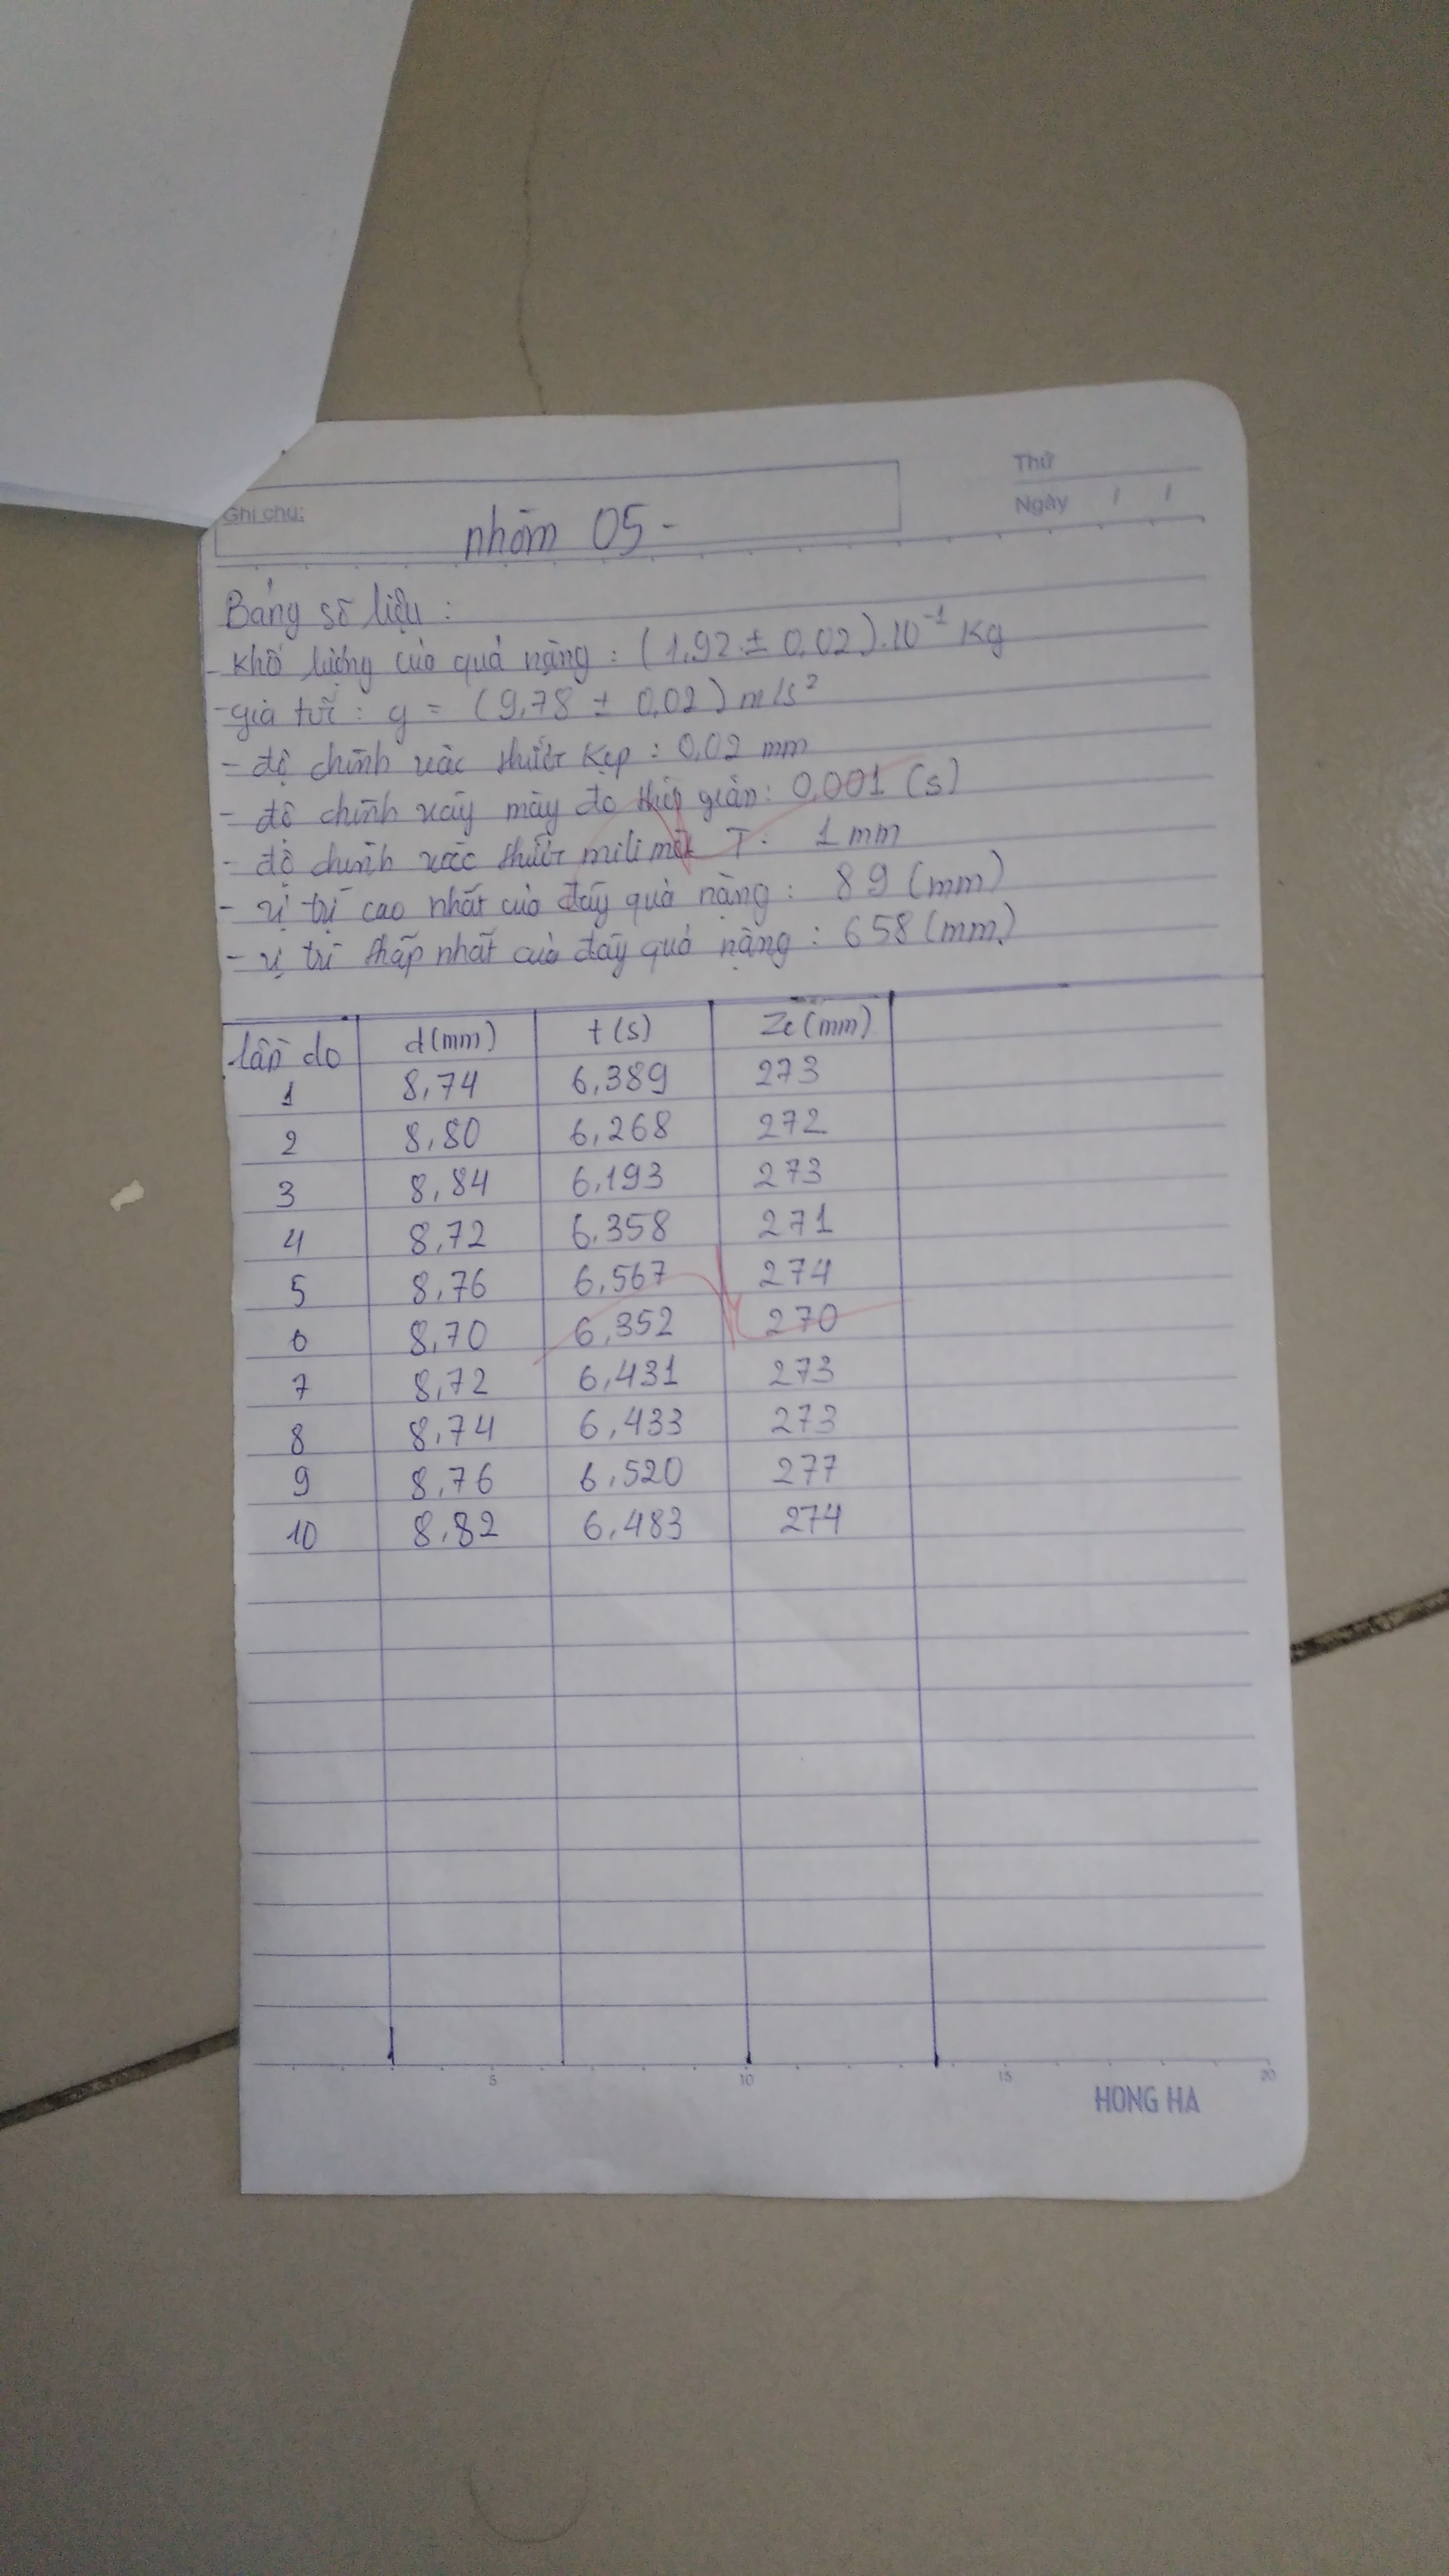 Thứ
Ghi chú:
Ngày / /
nhóm 05-
Bảng số liệu :
- Khố lượng của quả nặng : (1,92 ± 0,02).10⁻¹ Kg
- gia tố : g = (9,78 ± 0,02) m/s²
- độ chính xác thước kẹp : 0,02 mm
- độ chính xáy máy đo thời gian : 0,001 (s)
- độ chính xác thước milimét T : 1 mm
- vị trí cao nhất của đáy quả nặng : 89 (mm)
- vị trí thấp nhất của đáy quả nặng : 658 (mm)
lần đo d(mm) t(s) Zc(mm)
1 8,74 6,389 273
2 8,80 6,268 272
3 8,84 6,193 273
4 8,72 6,358 271
5 8,76 6,567 274
6 8,70 6,352 270
7 8,72 6,431 273
8 8,74 6,433 273
9 8,76 6,520 277
10 8,82 6,483 274
5 10 15 20
HONG HA